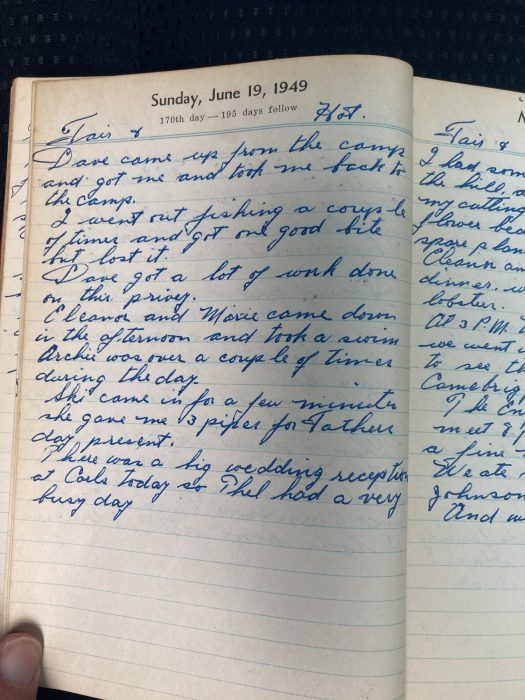 Sunday, June 19, 1949
170th day — 195 days follow
Fair & Hot.
Dave came up from the camp
and got me and took me back to
the camp.
I went out fishing a couple
of times and got one good bite
but lost it.
Dave got a lot of work done
on this privey.
Eleanor and Marie came down
in the afternoon and took a swim
Archie was over a couple of times
during the day
Ski came in for a few minutes
she gave me 3 pipes for Fathers
day present.
There was a big wedding reception
at Carls today so Thel had a very
busy day
Fair &
I had som
the hill, a
my cutting
flower bea
spare plan
Eleanor an
dinner. w
lobster.
At 3 P.M.
we went
to see th
Cambrig
The En
meet 8
a fine
We ate
Johnson
And w